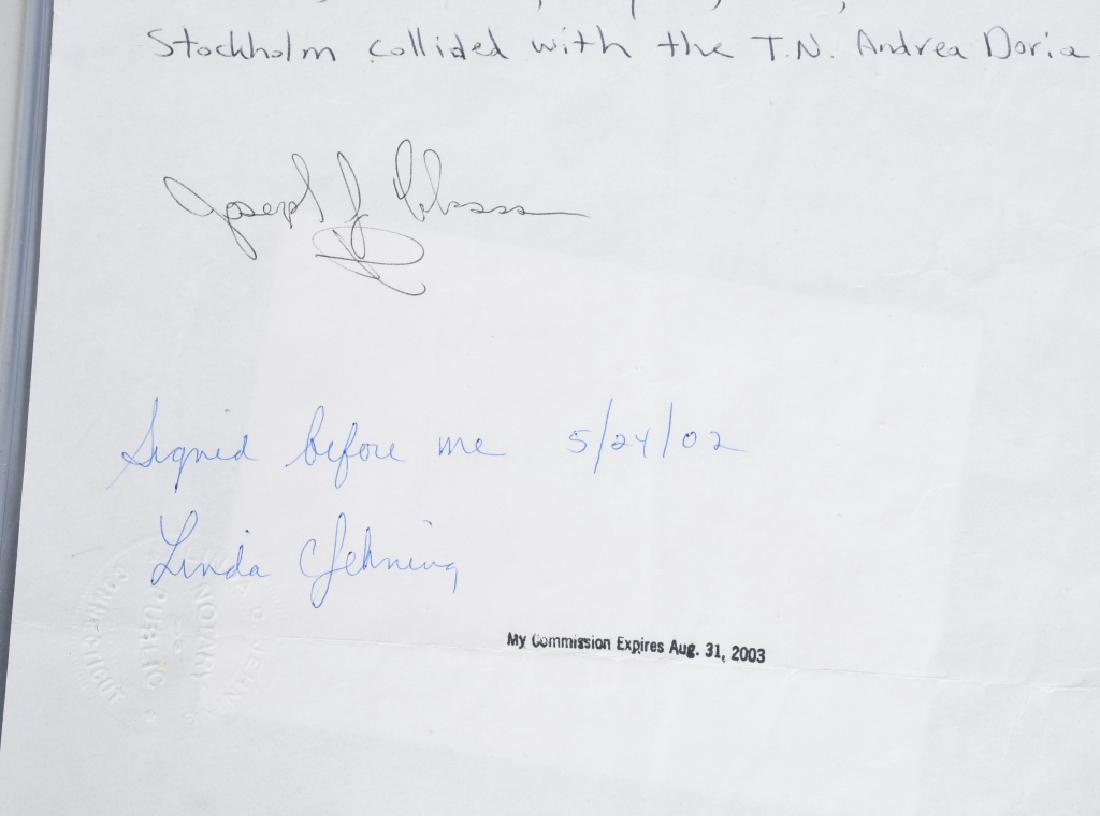 Stockholm collided with the T.N. Andrea Doria
Joseph J.
Signed before me 5/24/02
Linda Jehning
My Commission Expires Aug. 31, 2003
NOTARY
PUBLIC
CONNECTICUT